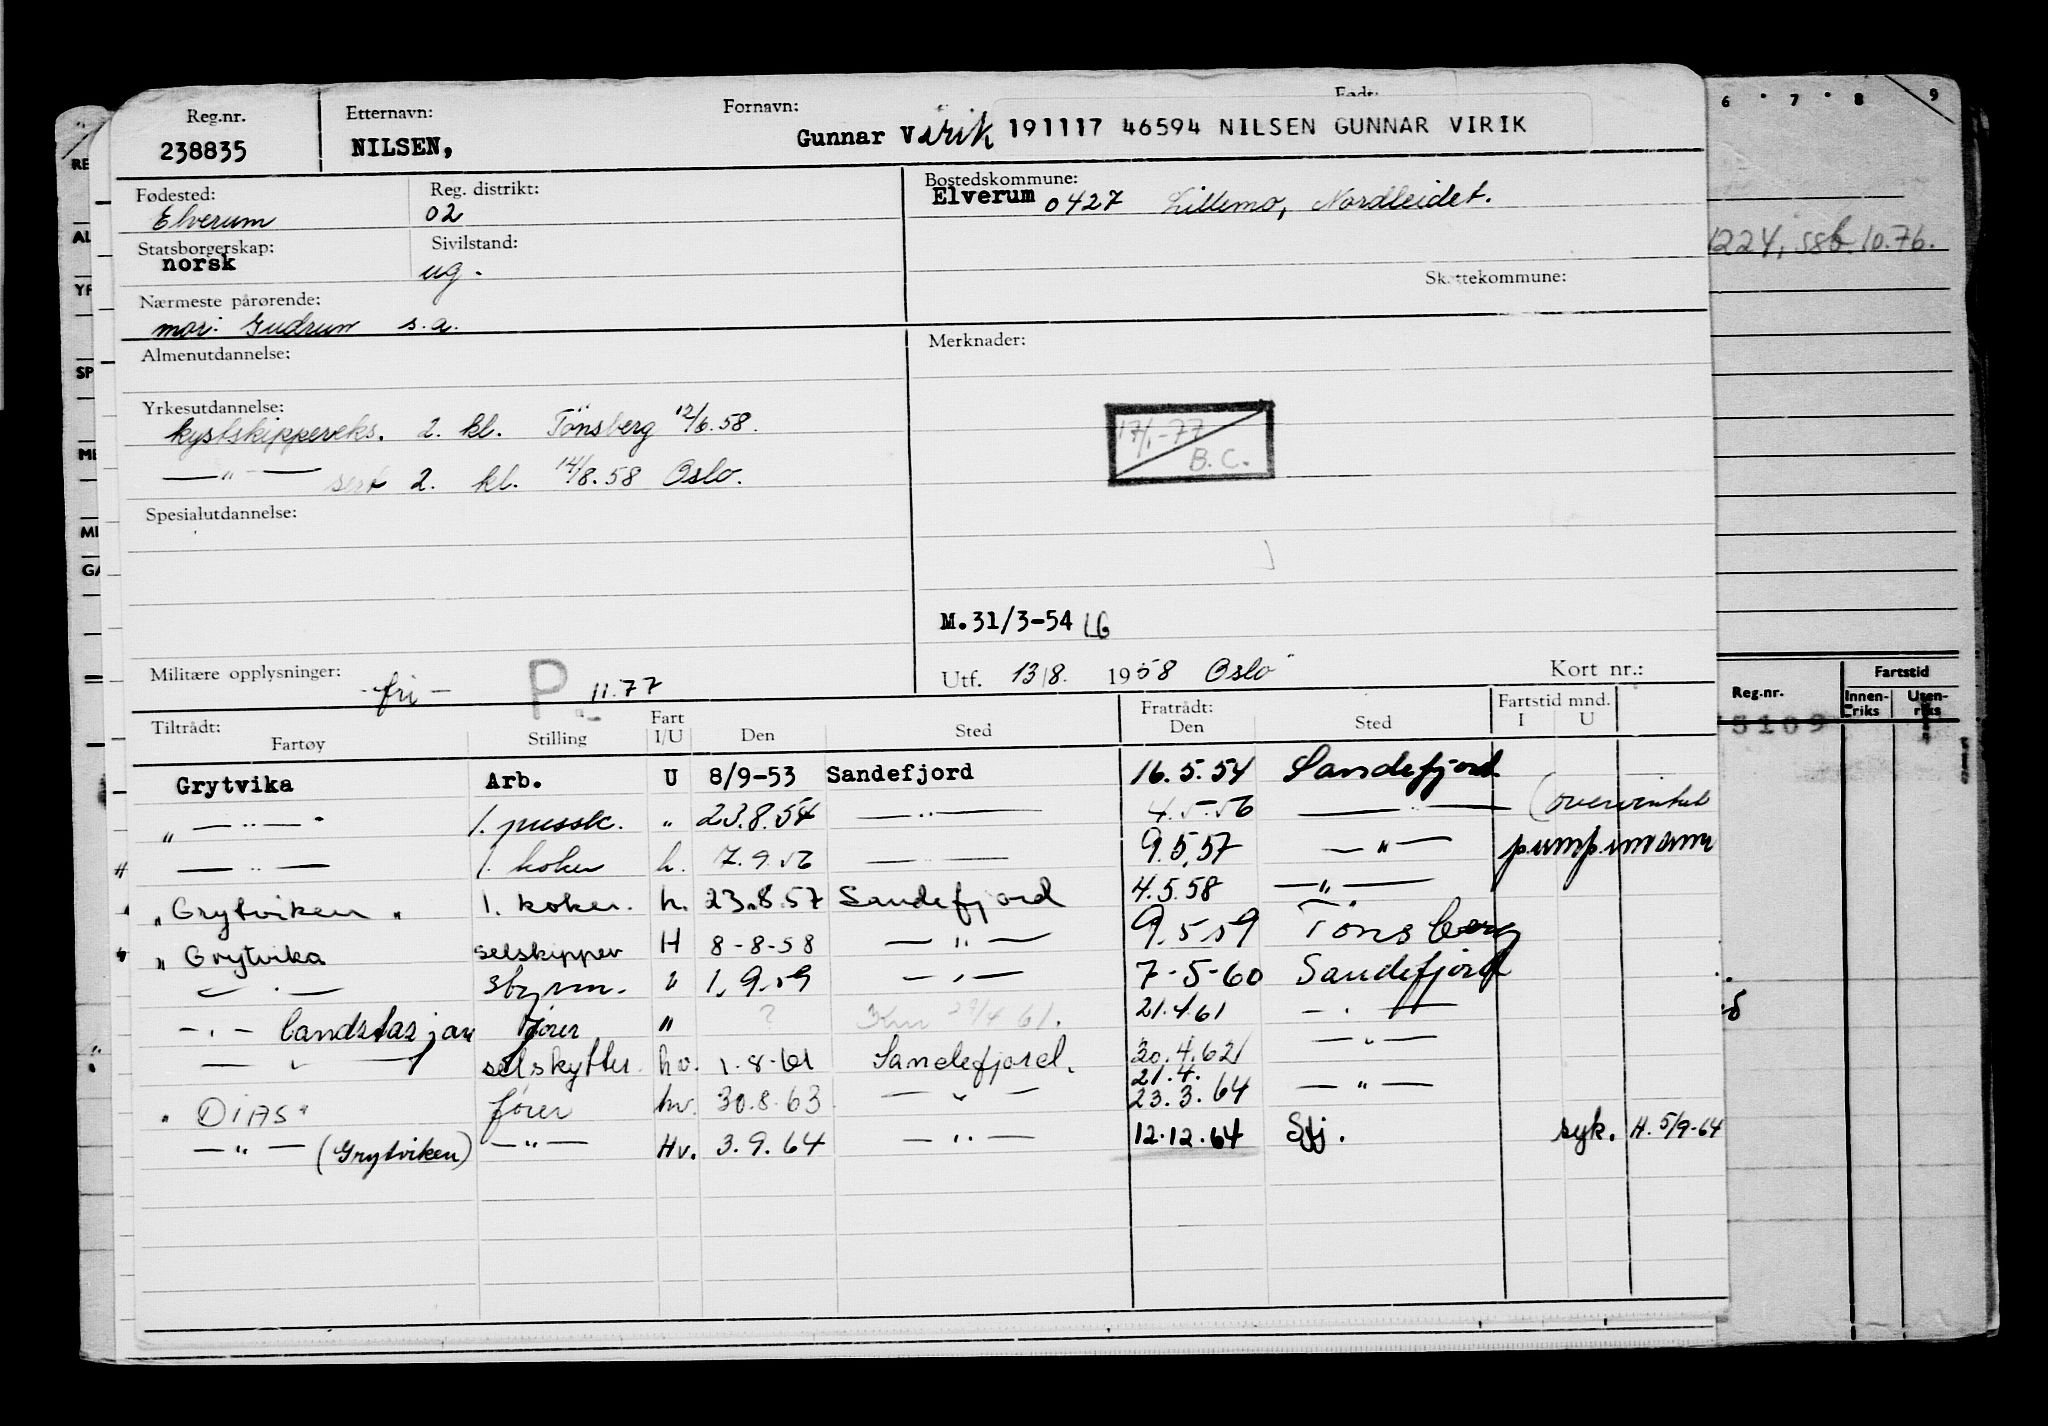 Reg.nr. Etternavn: Fornavn: Født:
238835 NILSEN, Gunnar Virik 191117 46594 NILSEN GUNNAR VIRIK
Fødested: Reg. distrikt: Bostedskommune:
Elverum 02 Elverum 0427 Lillemo, Nordleidet.
Statsborgerskap: Sivilstand:
norsk ug.
Skattekommune:
Nærmeste pårørende:
mor: Gudrun s.a.
Almenutdannelse: Merknader:
Yrkesutdannelse:
kystskippereks. 2. kl. Tönsberg 12/6.58.
17/1-77
B.C.
—"— sert 2. kl. 14/8.58 Oslo.
Spesialutdannelse:
M.31/3-54 LG
Militære opplysninger: -fri- P. 11.77 Utf. 13/8. 1958 Oslo Kort nr.:
Tiltrådt: Fart Fratrådt: Fartstid mnd.
Fartøy Stilling I/U Den Sted Den Sted I U
Grytvika Arb. U 8/9-53 Sandefjord 16.5.54 Sandefjord
" —"— " 1. pussk. " 23.8.54 —"— 4.5.56 —"— (overvintret
" —"— 1. koker h. 7.9.56 —"— 9.5.57 —"— pumpemann
" Grytviken " 1. koker. h. 23.8.57 Sandefjord 4.5.58 —"—
" Grytvika selskipper H 8-8-58 —"— 9.5.59 Tönsberg
—"— styrm. " 1.9.59 —"— 7-5-60 Sandefjord
—"— landstasjon fører " ? 21.4.61 —"—
—"— selskytter. hv. 1.8.61 Sandefjord. 30.4.62 —"—
21.4.
" DIAS " fører hv. 30.8.63 —"— 23.3.64 —"—
—"— (Grytviken) —"— Hv. 3.9.64 —"— 12.12.64 Sfj. syk. H. 5/9-64
RE
AL
YR
SP
ME
MI
GA
6 7 8 9
1224, ssb 10.76.
Reg.nr. Fartstid
Innen-riks Uten-riks
5109